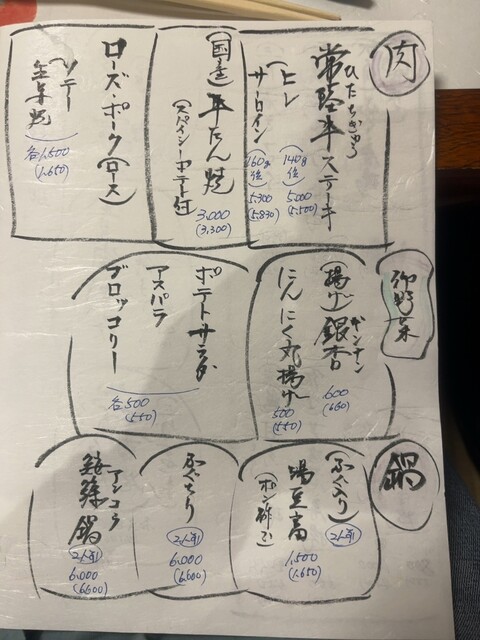 肉
ひたちぎゅう
常陸牛ステーキ
ヒレ (140g位) 5,000
(5,500)
サーロイン (160g位) 5,300
(5,830)
(国産) 牛たん焼
(スパイシーポテト付)
3,000
(3,300)
ローズ・ポーク(ロース)
ソテー
生姜焼
各1,500
(1,650)
御野菜
(揚げ)銀杏
ギンナン
600
(660)
にんにく丸揚げ
500
(550)
ポテトサラダ
アスパラ
ブロッコリー
各500
(550)
鍋
(ふぐ入り)
湯豆富
(ポン酢)
1,500
(1,650)
ふぐちり
2人前
6,000
(6,600)
アンコウ
鮟鱇鍋
2人前
6,000
(6,600)